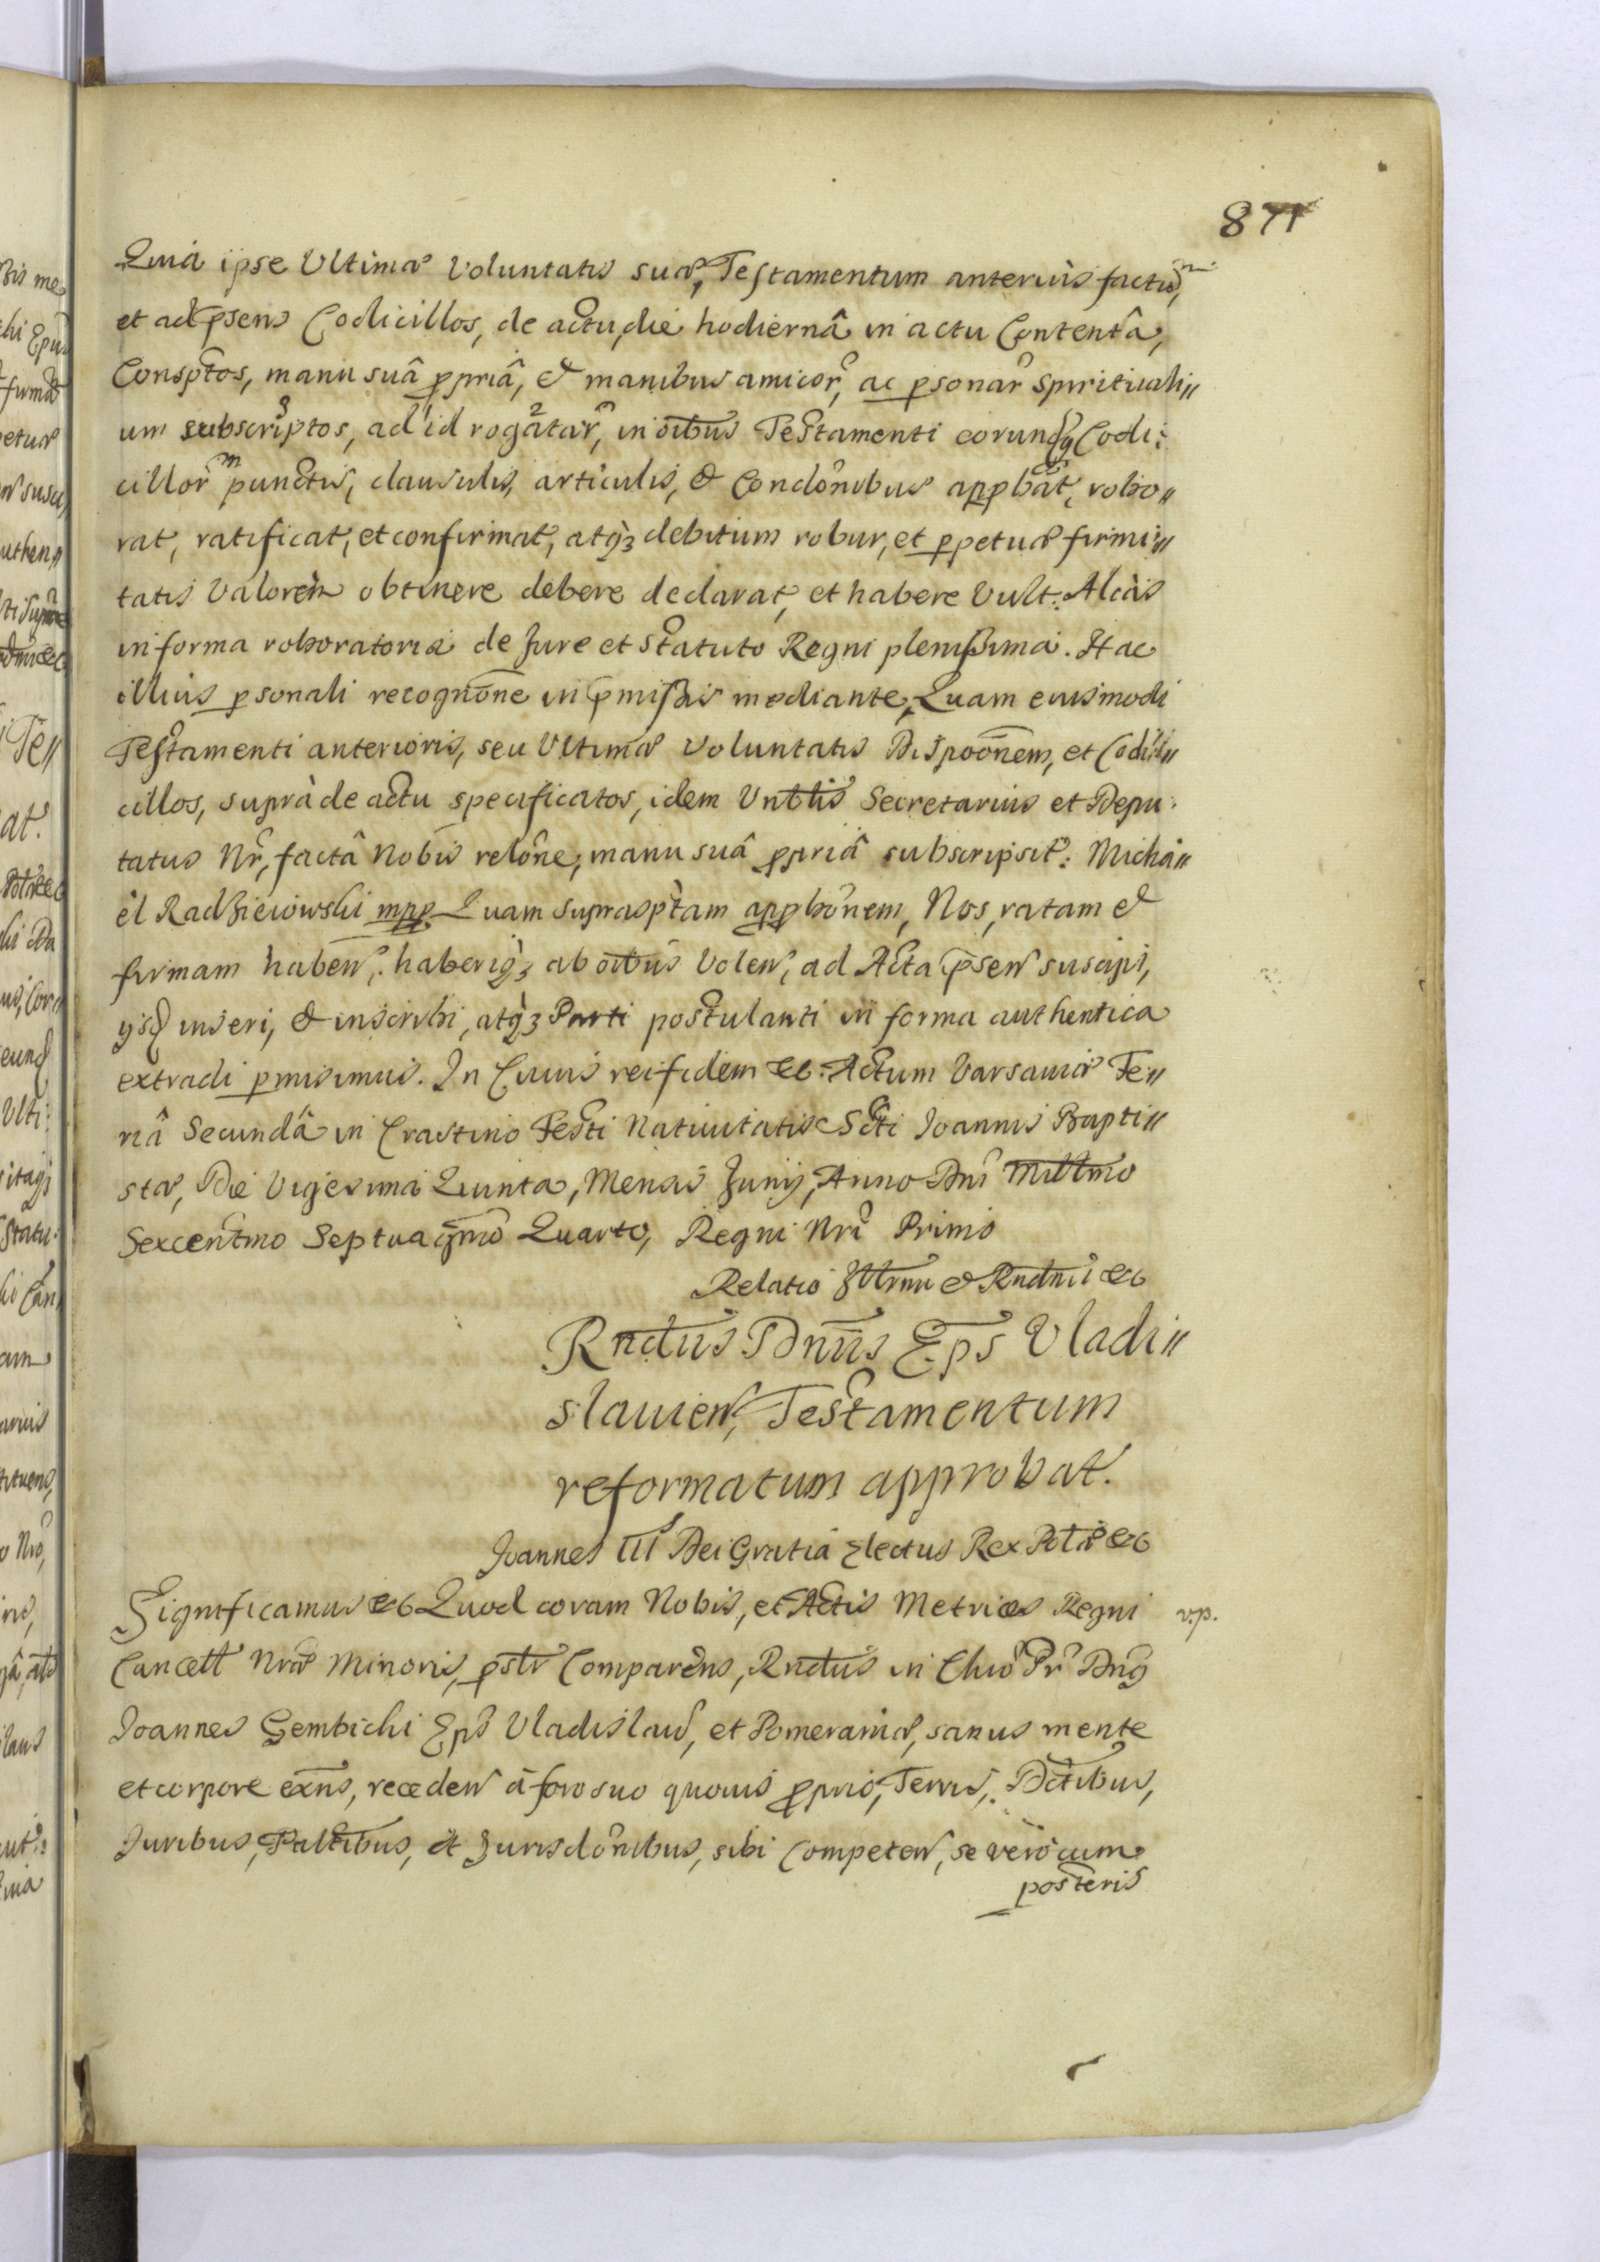 871
Quià ipse Ultimæ Voluntatis suæ, Testamentum anteriùs factũ,
et ad p̃sens Codicillos, de actu, die hodiernâ in actu Contentâ,
Conspt̃os, manu suâ ppriâ, & manibus amicor̃, ac psonar̃ Spirituali〃
um subscriptos, ad id rogatar̃, in oĩbus Testamenti eorundq̃ Codi:
cillor̃ punctis, clausulis, articulis, & Condõnibus appbat, robo〃
rat, ratificat, et confirmat, atq̀ȝ debitum robur, et ppetuæ firmi〃
tatis Valorem obtinere debere declarat, et habere Vult: Aliàs
in forma roboratoria de Jure et Statuto Regni plenissima. Hac
illius psonali recognõne in p̃missis mediante, Quam eiusmodi
Testamenti anterioris, seu Ultimæ Voluntatis Dispõonem, et Codi〃
cillos, supràde actu specificatos, idem Vrbtlis Secretarius et Depu:
tatus Nr̃, factâ Nobis relõne, manu suâ ppriâ subscripsit: Michà〃
èl Radzieiowski mpp Quam suprasptam appbõnem, Nos, ratam &
firmam haben̄, haberiq̀ȝ ab oĩbus Volen̄, ad Acta p̃sen̄ suscipi,
ysq̃ inseri, & inscribi, atq̀ȝ Parti postulanti in forma authentica
extradi pmisimus. In Cuius rei fidem &c. Actum Varsaviæ Fe〃
riâ Secundâ in Crastino Festi Nativitatis Scti Joannis Bapti〃
stæ, Die Vigesima Quinta, Mensis Junij, Anno Dnĩ Milltmo
Sexcentmo Septuagm̃o Quarto, Regni Nri Primo
Relatio Illrmi & Rndmi &c
Rndus Dnus Eps Vladi〃
slavien̄, Testamentum
reformatum approbat.
Joannes III Dei Gratia Electus Rex Polæ &c
Significamus &c Quod coram Nobis, et Actis Metrices Regni
v.p.
Cancell Nræ Minoris, pslr Comparens, Rndus in Chrõ Pr̃ Dng
Joannes Gembicki Eps Vladislav̄, et Pomeraniæ, sanus mente
et corpore exñs, receden̄ à foro suo quovis pprio, Terris, Dctibus,
Juribus, Paltibus, et Jurisdõnibus, sibi Competen̄, se verò cum
posteris